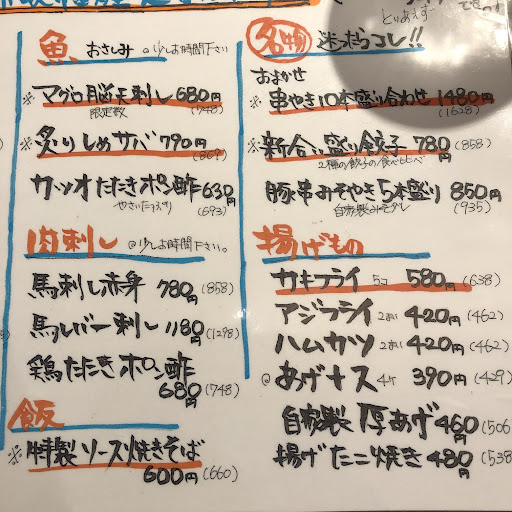 とりあえず
魚 おさしみ @少しお時間下さい
※マグロ脳天刺し 680円
限定数 (748)
※炙りしめサバ 790円
(869)
カツオたたきポン酢 630円
やさいたっぷり (693)
肉刺し @少しお時間下さい。
馬刺し赤身 780円 (858)
馬レバー刺し 1180円 (1298)
鶏たたきポン酢
680円 (748)
飯
※特製ソース焼きそば
600円 (660)
名物 迷ったらコレ!!
おまかせ
※串やき10本盛り合わせ 1480円
(1628)
※新合い盛り餃子 780円 (858)
2種の餃子の食べ比べ
豚串みそやき5本盛り 850円
自家製みそダレ (935)
揚げもの
カキフライ 5コ 580円 (638)
アジフライ 2まい 420円 (462)
ハムカツ 2まい 420円 (462)
@あげナス 4ケ 390円 (429)
自家製厚あげ 460円 (506
揚げたこ焼き 480円 (538